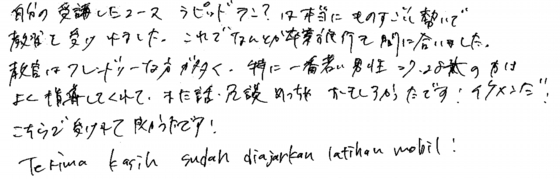 自分の受講したコース ラピッドプラン？は本当にものすごい勢いで
教習を受けれました。これでなんとか卒業旅行も間に合いました。
教官はフレンドリーな方が多く、特に一番若い男性 の方は
よく指導してくれて、また話・冗談めっちゃおもしろかったです！イケメンだ！
こちらで受けれて良かったです！
Terima kasih sudah diajarkan latihan mobil!